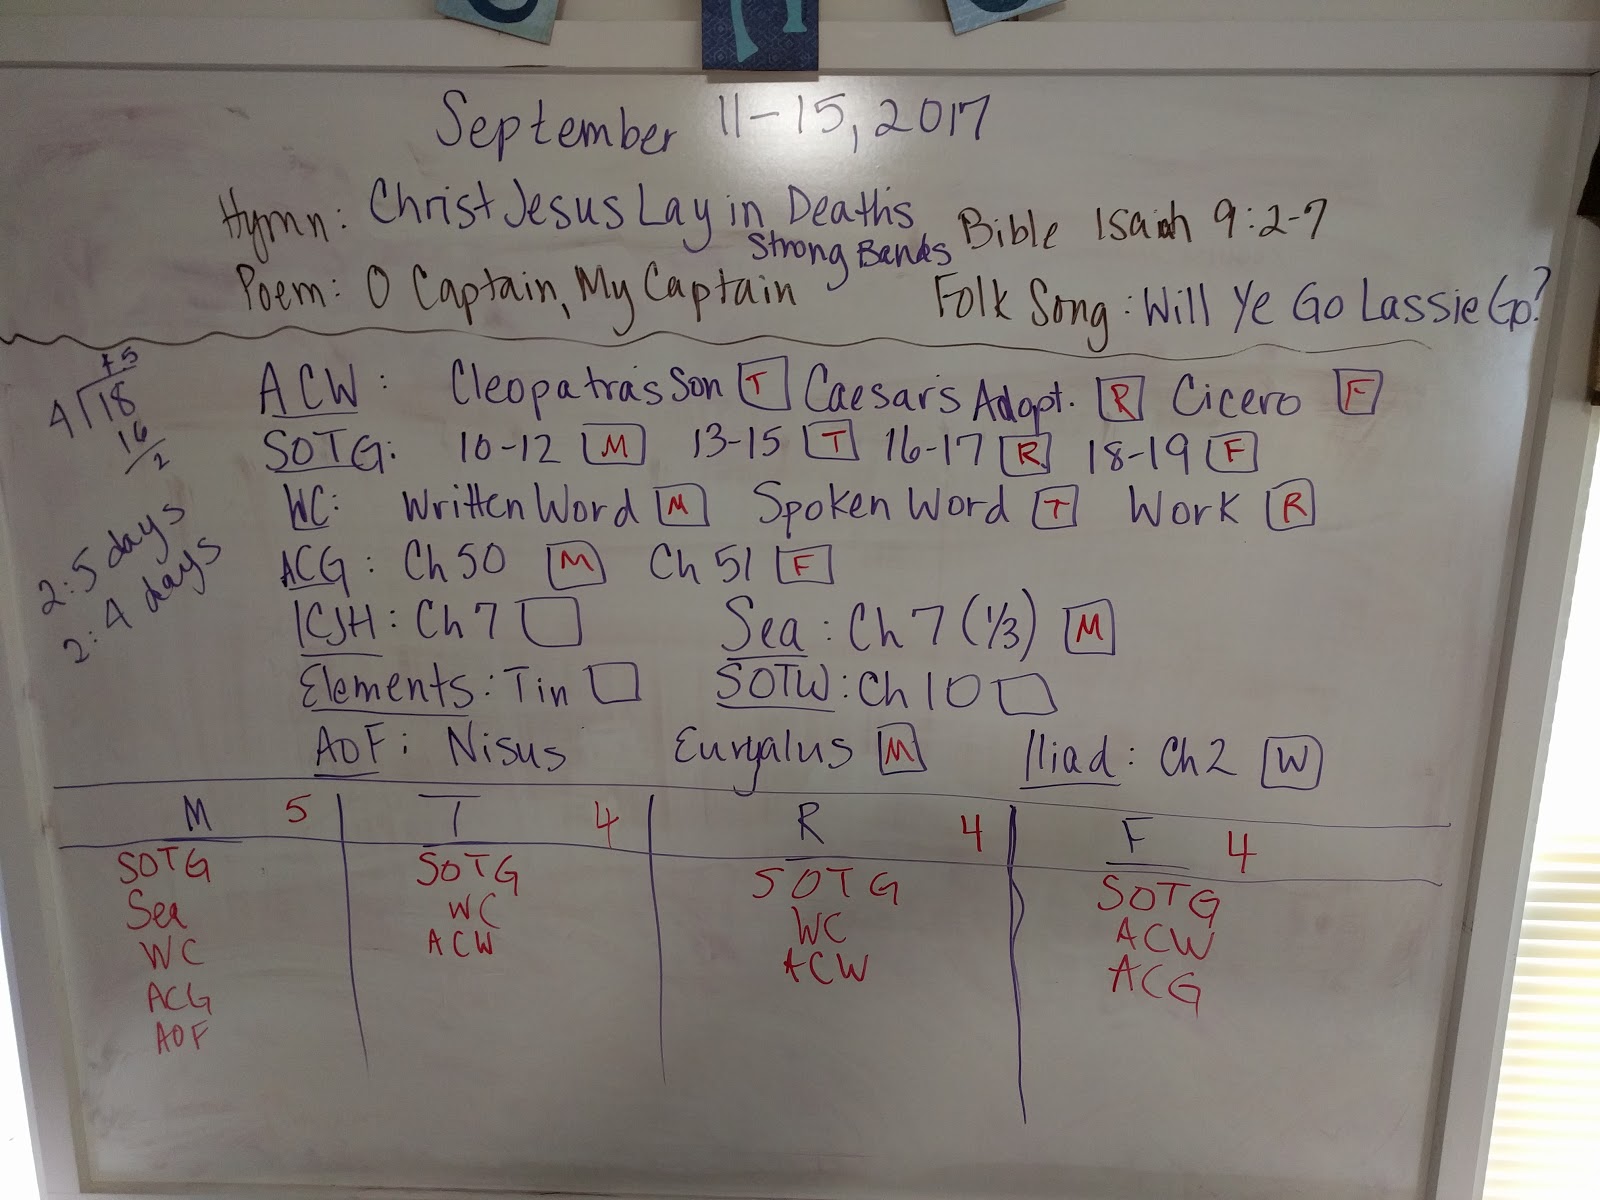 September 11-15, 2017
Hymn: Christ Jesus Lay in Deaths Strong Bands
Bible Isaiah 9:2-7
Poem: O Captain, My Captain
Folk Song: Will Ye Go Lassie Go?
4 18
16
2
2:5 days
2:4 days
ACW: Cleopatras Son T Caesar's Adopt. R Cicero F
SOTG: 10-12 M 13-15 T 16-17 R 18-19 F
WC: Written Word M Spoken Word T Work R
ACG: Ch 50 M Ch 51 F
ICJH: Ch 7 Sea: Ch 7 (1/3) M
Elements: Tin SOTW: Ch 10
AOF: Nisus Euryalus M Iliad: Ch 2 W
M 5 T 4 R 4 F 4
SOTG SOTG SOTG SOTG
Sea WC WC ACW
WC ACW ACW ACG
ACG
AOF